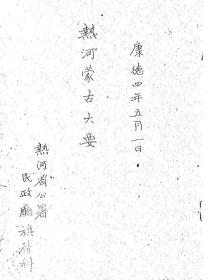 康德四年五月一日
熱河蒙古大要
熱河省公署
民政廳旗務科